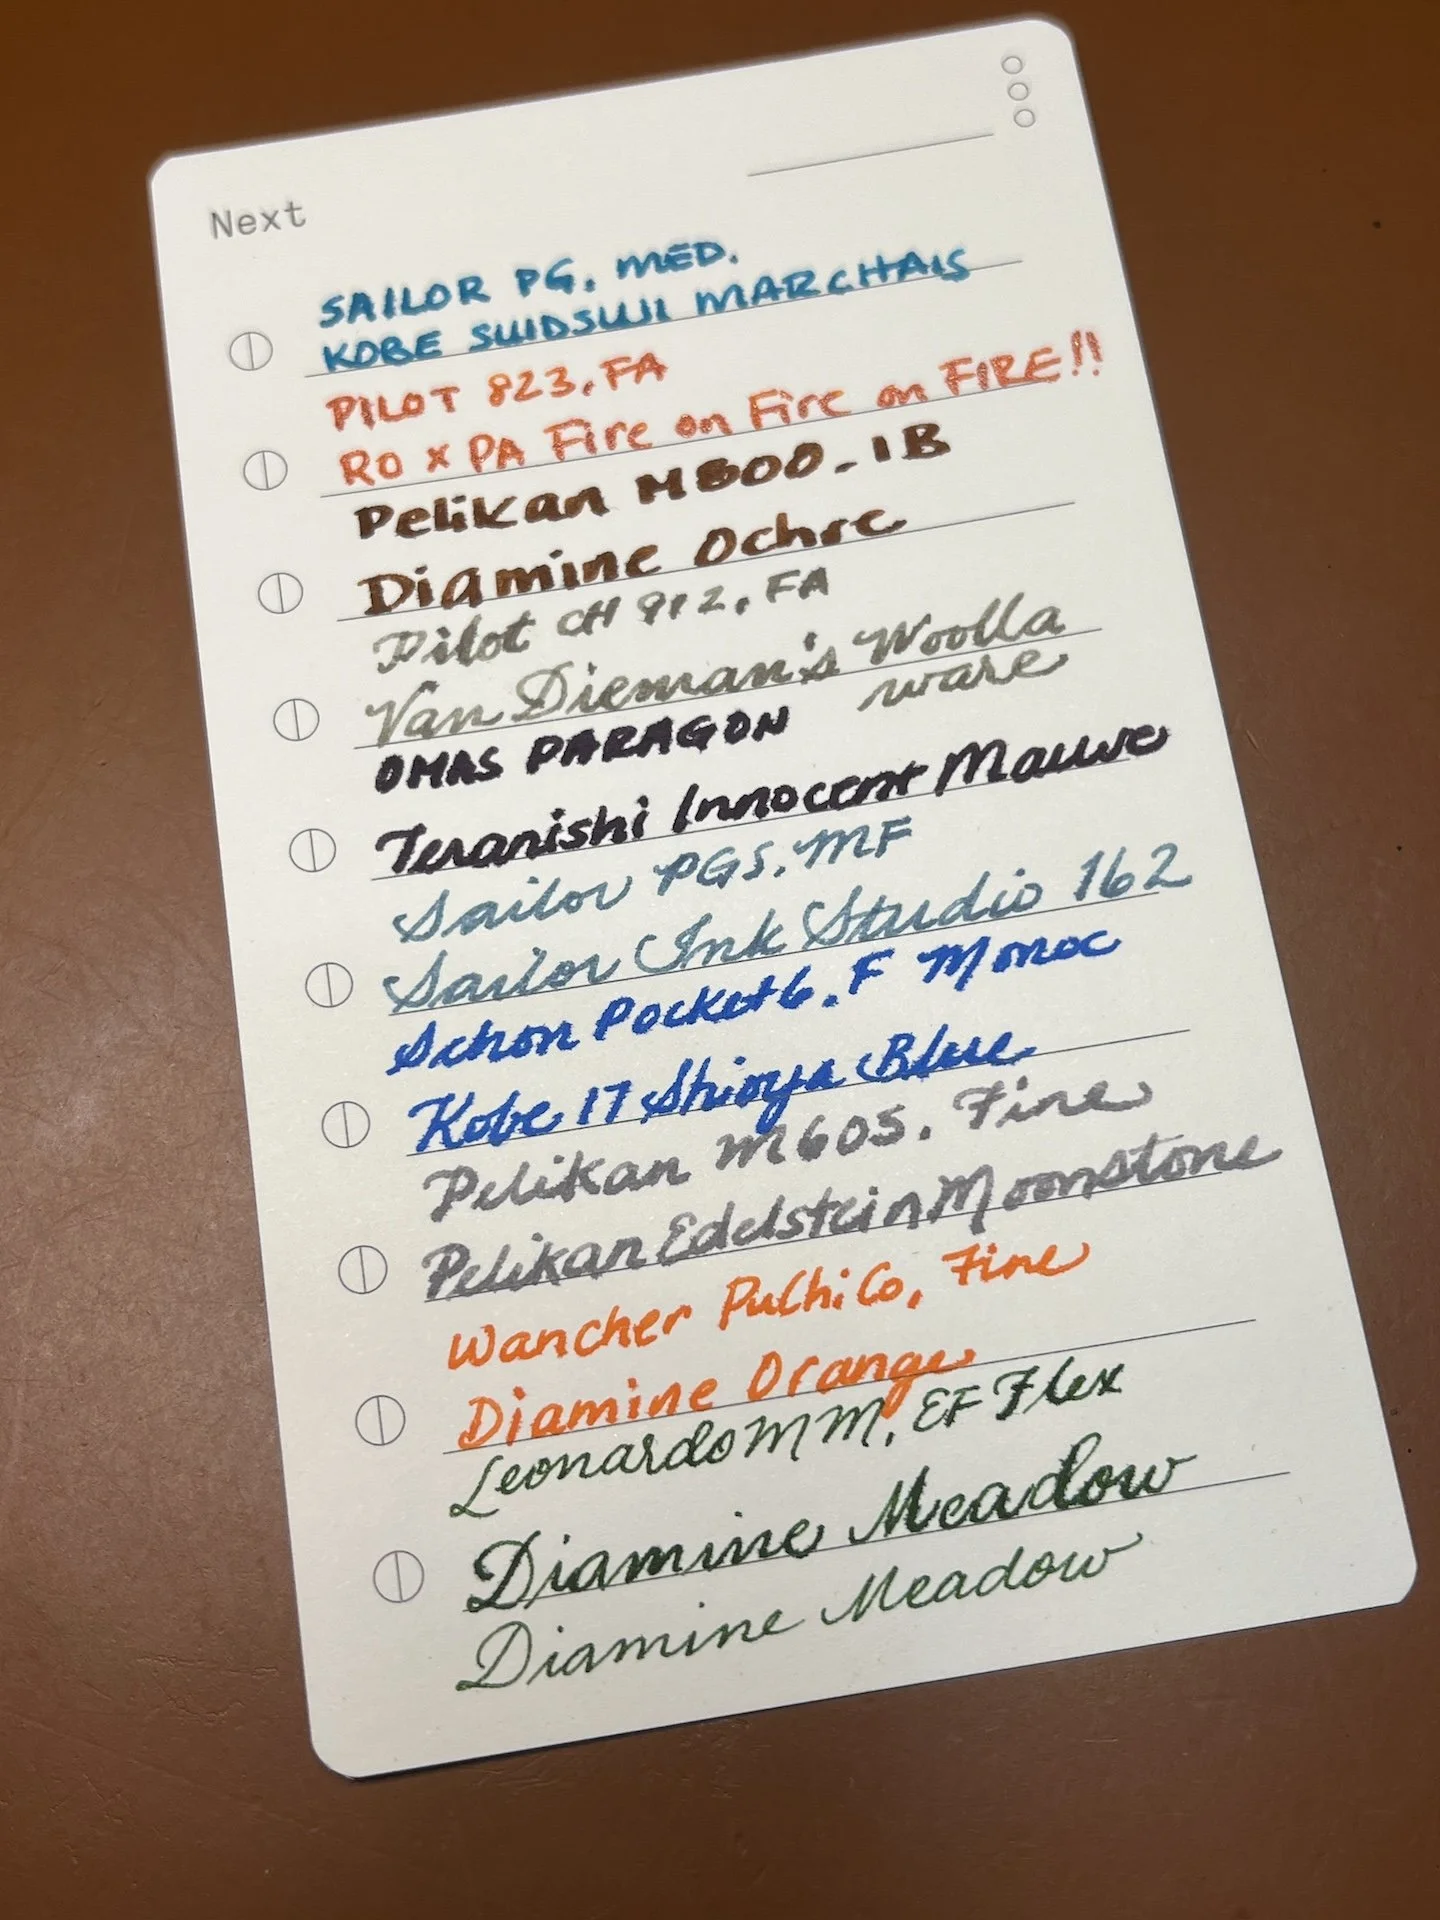 Next
SAILOR PG. MED.
KOBE SUIDSUJI MARCHAIS
PILOT 823, FA
RO x PA Fire on Fire on FIRE!!
Pelikan M800 - IB
Diamine Ochre
Pilot CH 912, FA
Van Dieman's Woolla
ware
OMAS PARAGON
Teranishi Innocent Mauve
Sailor PGS. MF
Sailor Ink Studio 162
Schon Pocket 6. F Monoc
Kobe 17 Shioya Blue
Pelikan M605. Fine
Pelikan Edelstein Moonstone
Wancher PuChiCo, Fine
Diamine Orange
Leonardo MM, EF Flex
Diamine Meadow
Diamine Meadow